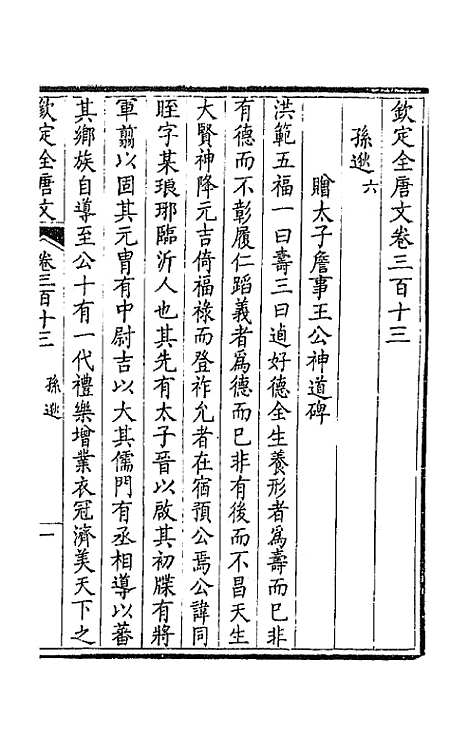 欽定全唐文卷三百十三
孫逖 六
贈太子詹事王公神道碑
洪範五福一曰壽三曰逌好德全生養形者為壽而已非
有德而不彰履仁蹈義者為德而已非有後而不昌天生
大賢神降元吉倚福祿而登祚允者在宿預公焉公諱同
晊字某琅邪臨沂人也其先有太子晉以啟其初牒有將
軍翦以固其元胄有中尉吉以大其儒門有丞相導以蕃
其鄉族自導至公十有一代禮樂增業衣冠濟美天下之
欽定全唐文 卷三百十三 孫逖 一